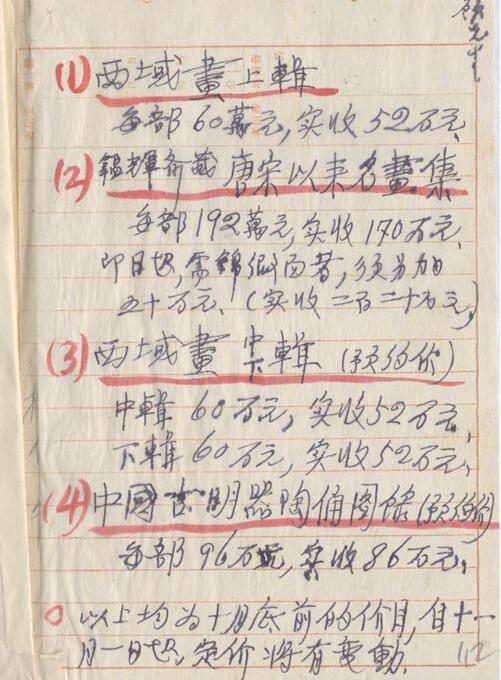 (1) 西域畫上輯
每部60萬元,实收52万元.
(2) 韞輝斋藏唐宋以来名畫集
每部192萬元,实收170万元.
即日起,需錦缎面者,须另加
五十万元.(实收二百二十万元)
(3) 西域畫中下輯(预约价)
中輯60万元,实收52万元,
下輯60万元,实收52万元,
(4) 中國古明器陶俑图錄(预约价)
每部96万元,实收86万元,
○ 以上均为十月底前的价目,自十一
月一日起,定价将有变動.
112